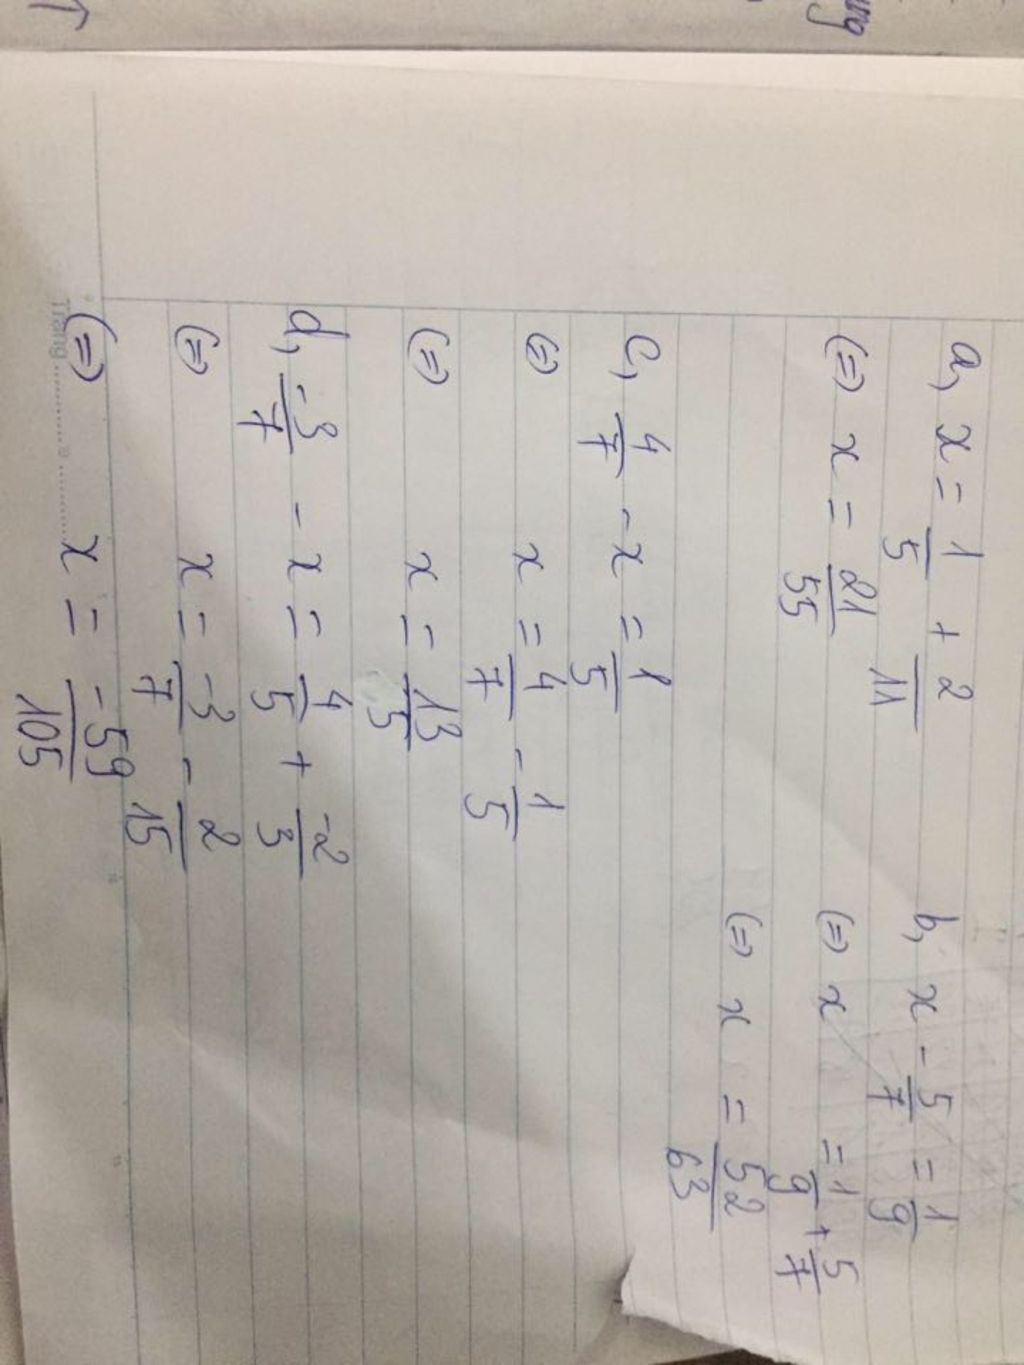 a, x = 1/5 + 2/11
(=) x = 21/55
b, x - 5/7 = 1/9
(=) x = 1/9 + 5/7
(=) x = 52/63
c, 4/7 - x = 1/5
(=) x = 4/7 - 1/5
(=) x = 13/5
d, -3/7 - x = 4/5 + -2/3
(=) x = -3/7 - 2/15
(=) x = -59/105
Trang